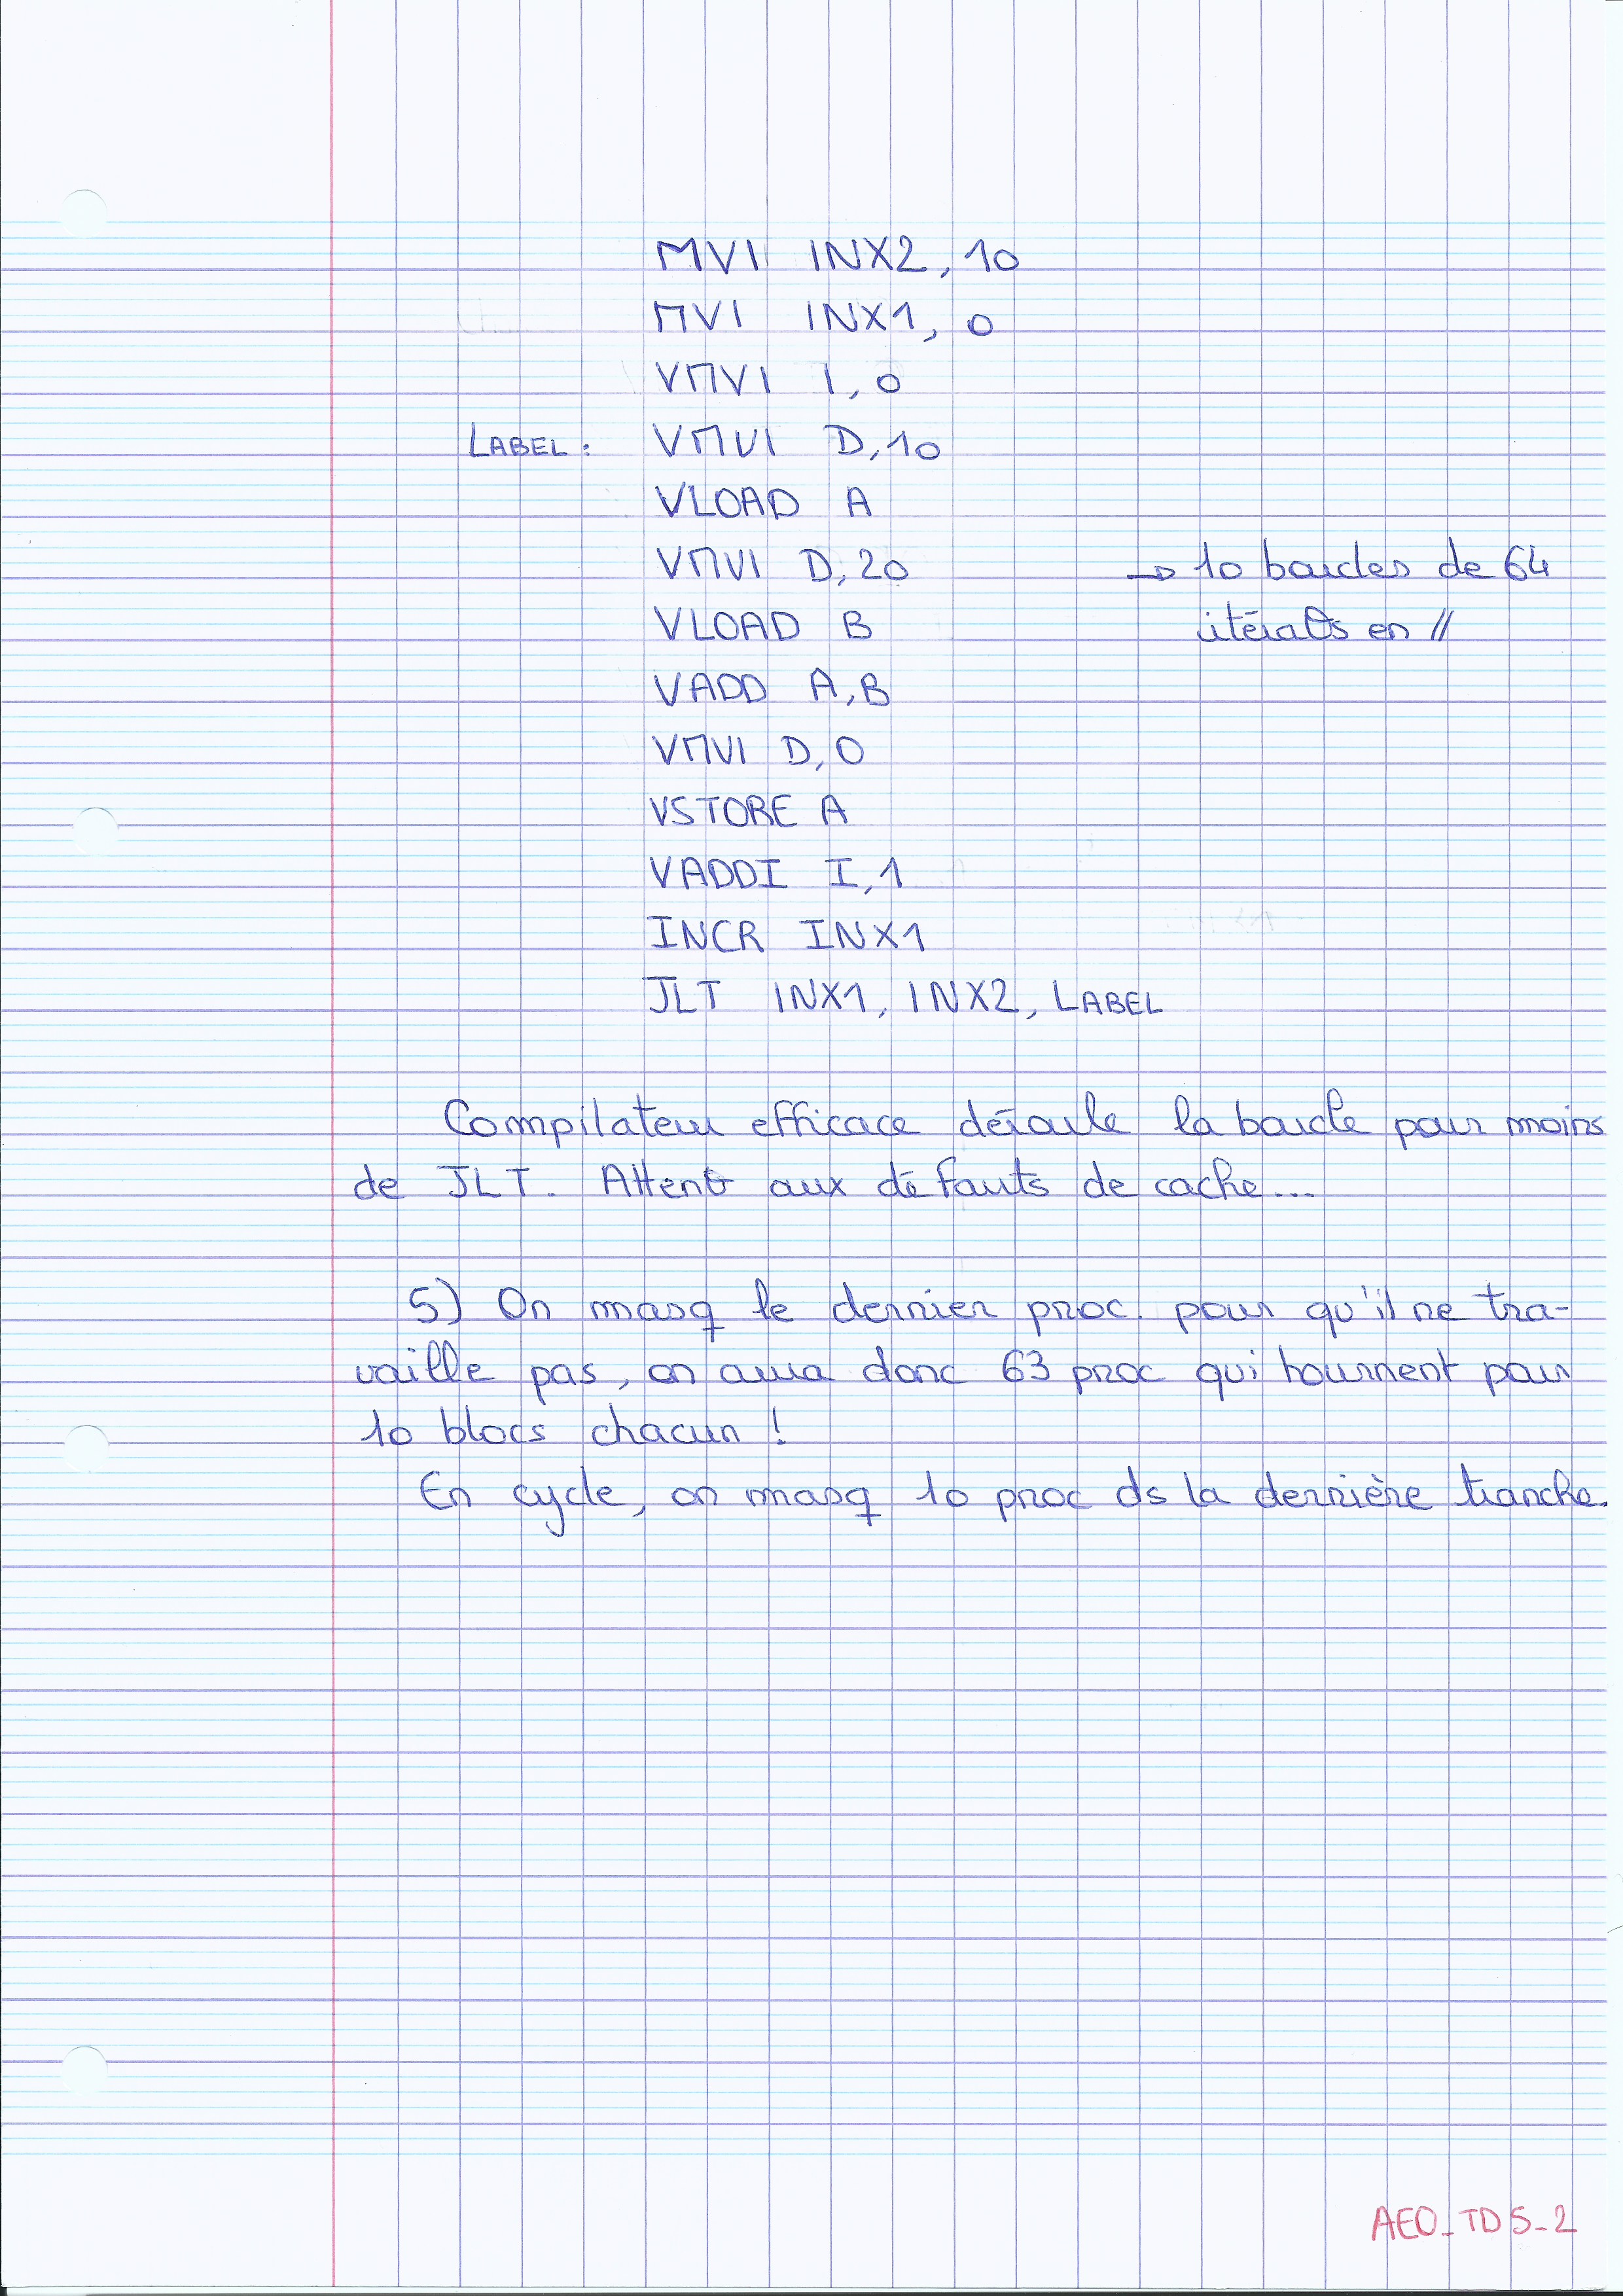 MVI INX2, 10
MVI INX1, 0
VMVI I, 0
LABEL : VMVI D, 10
VLOAD A
VMVI D, 20 → 10 boucles de 64
VLOAD B itérat°s en //
VADD A, B
VMVI D, 0
VSTORE A
VADDI I, 1
INCR INX1
JLT INX1, INX2, LABEL
Compilateur efficace déroule la boucle pour moins
de JLT. Attent° aux défauts de cache...
5) On masq le dernier proc. pour qu'il ne tra-
vaille pas, on aura donc 63 proc qui tournent pour
10 blocs chacun !
En cycle, on masq 10 proc ds la dernière tranche.
AEO_TD5_2